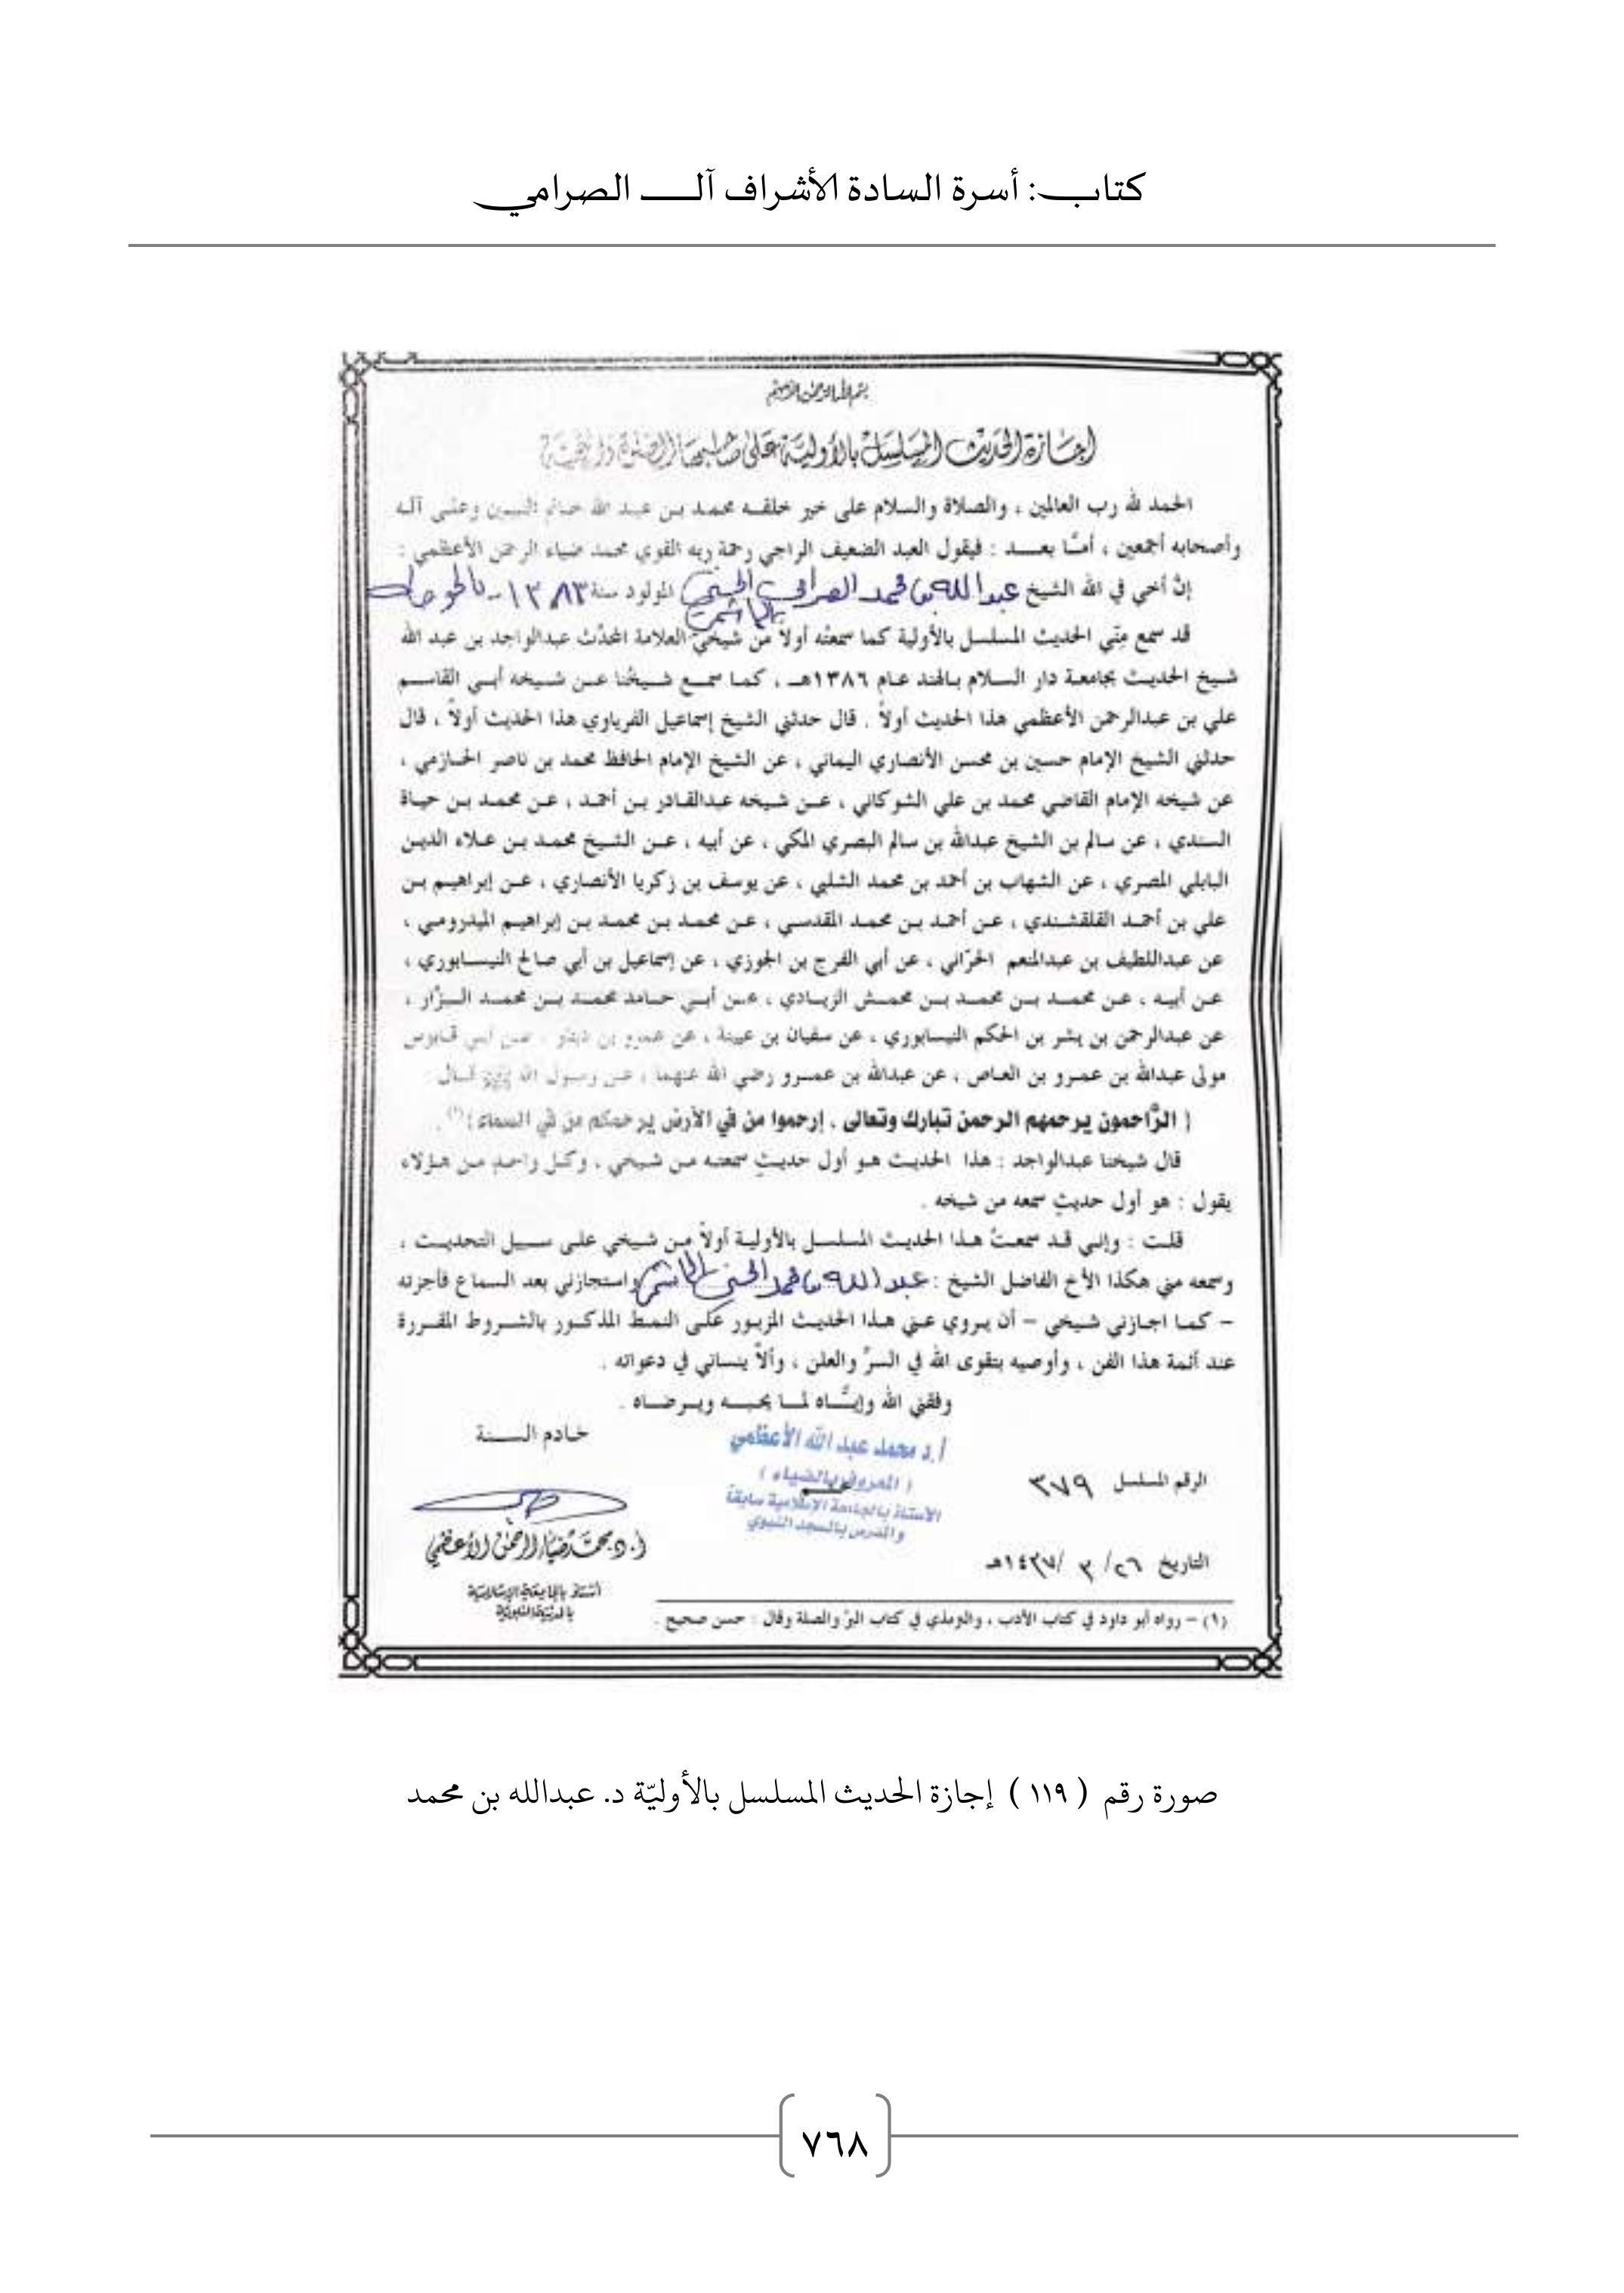 كتاب: أسرة السادة الأشراف آل الصرامي
إجازة الحديث المسلسل بالأولية على صاحبها الصلاة والتحية
الحمد لله رب العالمين ، والصلاة والسلام على خير خلقه محمد بن عبد الله خاتم النبيين وعلى آله
وأصحابه أجمعين ، أمَّا بعد : فيقول العبد الضعيف الراجي رحمة ربه القوي محمد ضياء الرحمن الأعظمي :
إنَّ أخي في الله الشيخ عبدالله بن محمد الصرامي الحسني الهاشمي المولود سنة ١٣٨٣
قد سمع منِّي الحديث المسلسل بالأولية كما سمعتُه أولاً من شيخي العلامة المحدِّث عبدالواجد بن عبد الله
شيخ الحديث بجامعة دار السلام بالهند عام ١٣٨٦هـ ، كما سمع شيخُنا عن شيخه أبي القاسم
علي بن عبدالرحمن الأعظمي هذا الحديث أولاً . قال حدثني الشيخ إسماعيل الفرياوي هذا الحديث أولاً ، قال
حدثني الشيخ الإمام حسين بن محسن الأنصاري اليماني ، عن الشيخ الإمام الحافظ محمد بن ناصر الحازمي ،
عن شيخه الإمام القاضي محمد بن علي الشوكاني ، عن شيخه عبدالقادر بن أحمد ، عن محمد بن حياة
السندي ، عن سالم بن الشيخ عبدالله بن سالم البصري المكي ، عن أبيه ، عن الشيخ محمد بن علاء الدين
البابلي المصري ، عن الشهاب بن أحمد بن محمد الشلبي ، عن يوسف بن زكريا الأنصاري ، عن إبراهيم بن
علي بن أحمد القلقشندي ، عن أحمد بن محمد المقدسي ، عن محمد بن محمد بن إبراهيم الميدومي ،
عن عبداللطيف بن عبدالمنعم الحرّاني ، عن أبي الفرج بن الجوزي ، عن إسماعيل بن أبي صالح النيسابوري ،
عن أبيه ، عن محمد بن محمد بن محمش الزيادي ، عن أبي حامد محمد بن محمد البزَّار ،
عن عبدالرحمن بن بشر بن الحكم النيسابوري ، عن سفيان بن عيينة ، عن عمرو بن دينار ، عن أبي قابوس
مولى عبدالله بن عمرو بن العاص ، عن عبدالله بن عمرو رضي الله عنهما ، عن رسول الله ﷺ قال
( الرَّاحمون يرحمهم الرحمن تبارك وتعالى . إرحموا من في الأرض يرحمكم من في السماء )(١) .
قال شيخنا عبدالواجد : هذا الحديث هو أول حديثٍ سمعته من شيخي ، وكل واحدٍ من هؤلاء
يقول : هو أول حديثٍ سمعه من شيخه .
قلت : وإني قد سمعتُ هذا الحديث المسلسل بالأولية أولاً من شيخي على سبيل التحديث ،
وسمعه مني هكذا الأخ الفاضل الشيخ : عبدالله بن محمد الحسني الهاشمي واستجازني بعد السماع فأجزته
– كما اجازني شيخي – أن يروي عني هذا الحديث المزبور على النمط المذكور بالشروط المقررة
عند أئمة هذا الفن ، وأوصيه بتقوى الله في السرِّ والعلن ، وألاَّ ينساني في دعواته .
وفقني الله وإيَّاه لما يحبه ويرضاه .
خادم السنة
أ.د محمد عبد الله الأعظمي
( المعروف بالضياء )
الأستاذ بالجامعة الإسلامية سابقة
والمدرس بالمسجد النبوي
الرقم المسلسل ٣٧٩
أ.د محمد ضياء الرحمن الأعظمي
أستاذ بالجامعة الإسلامية
بالمدينة النبوية
التاريخ ٢٦/ ٣ /١٤٣٧هـ
(١) – رواه أبو داود في كتاب الأدب ، والترمذي في كتاب البرِّ والصلة وقال : حسن صحيح .
صورة رقم ( ١١٩ ) إجازة الحديث المسلسل بالأوليّة د. عبدالله بن محمد
٧٦٨